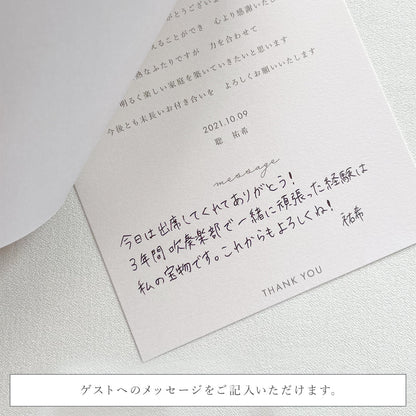 がとうござい
えることができ 心より感謝いたし
熟なふたりですが 力を合わせて
明るく楽しい家庭を築いていきたいと思います
今後とも末長いお付き合いを よろしくお願いいたします
2021.10.09
聡 祐希
message
今日は出席してくれてありがとう!
3年間吹奏楽部で一緒に頑張った経験は
私の宝物です。これからもよろしくね!
祐希
THANK YOU
ゲストへのメッセージをご記入いただけます。